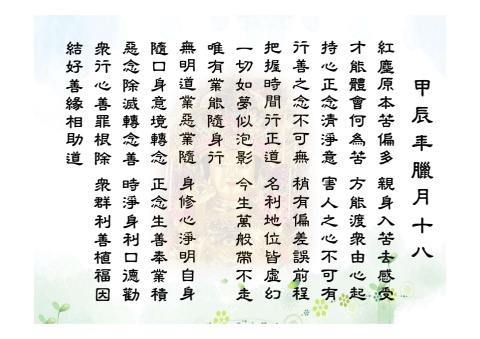 甲辰年臘月十八
紅塵原本苦偏多 親身入苦去感受
才能體會何為苦 方能渡眾由心起
持心正念清淨意 害人之心不可有
行善之念不可無 稍有偏差誤前程
把握時間行正道 名利地位皆虛幻
一切如夢似泡影 今生萬般帶不走
唯有業能隨身行
無明道業惡業隨 身修心淨明自身
隨口身意境轉念 正念生善奉業積
惡念除滅轉念善 時淨身利口德勸
眾行心善罪根除 眾群利善植福因
結好善緣相助道